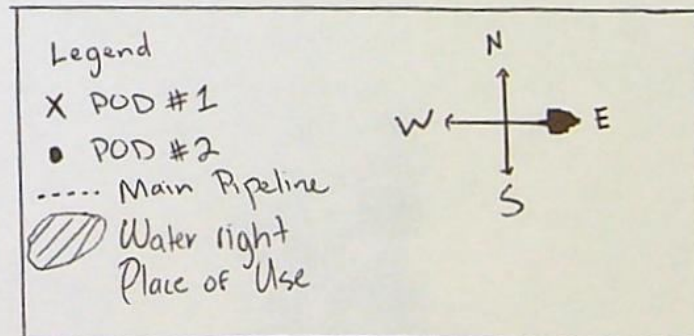 Legend
X POD #1
• POD #2
----- Main Pipeline
Water right
Place of Use
N
W E
S